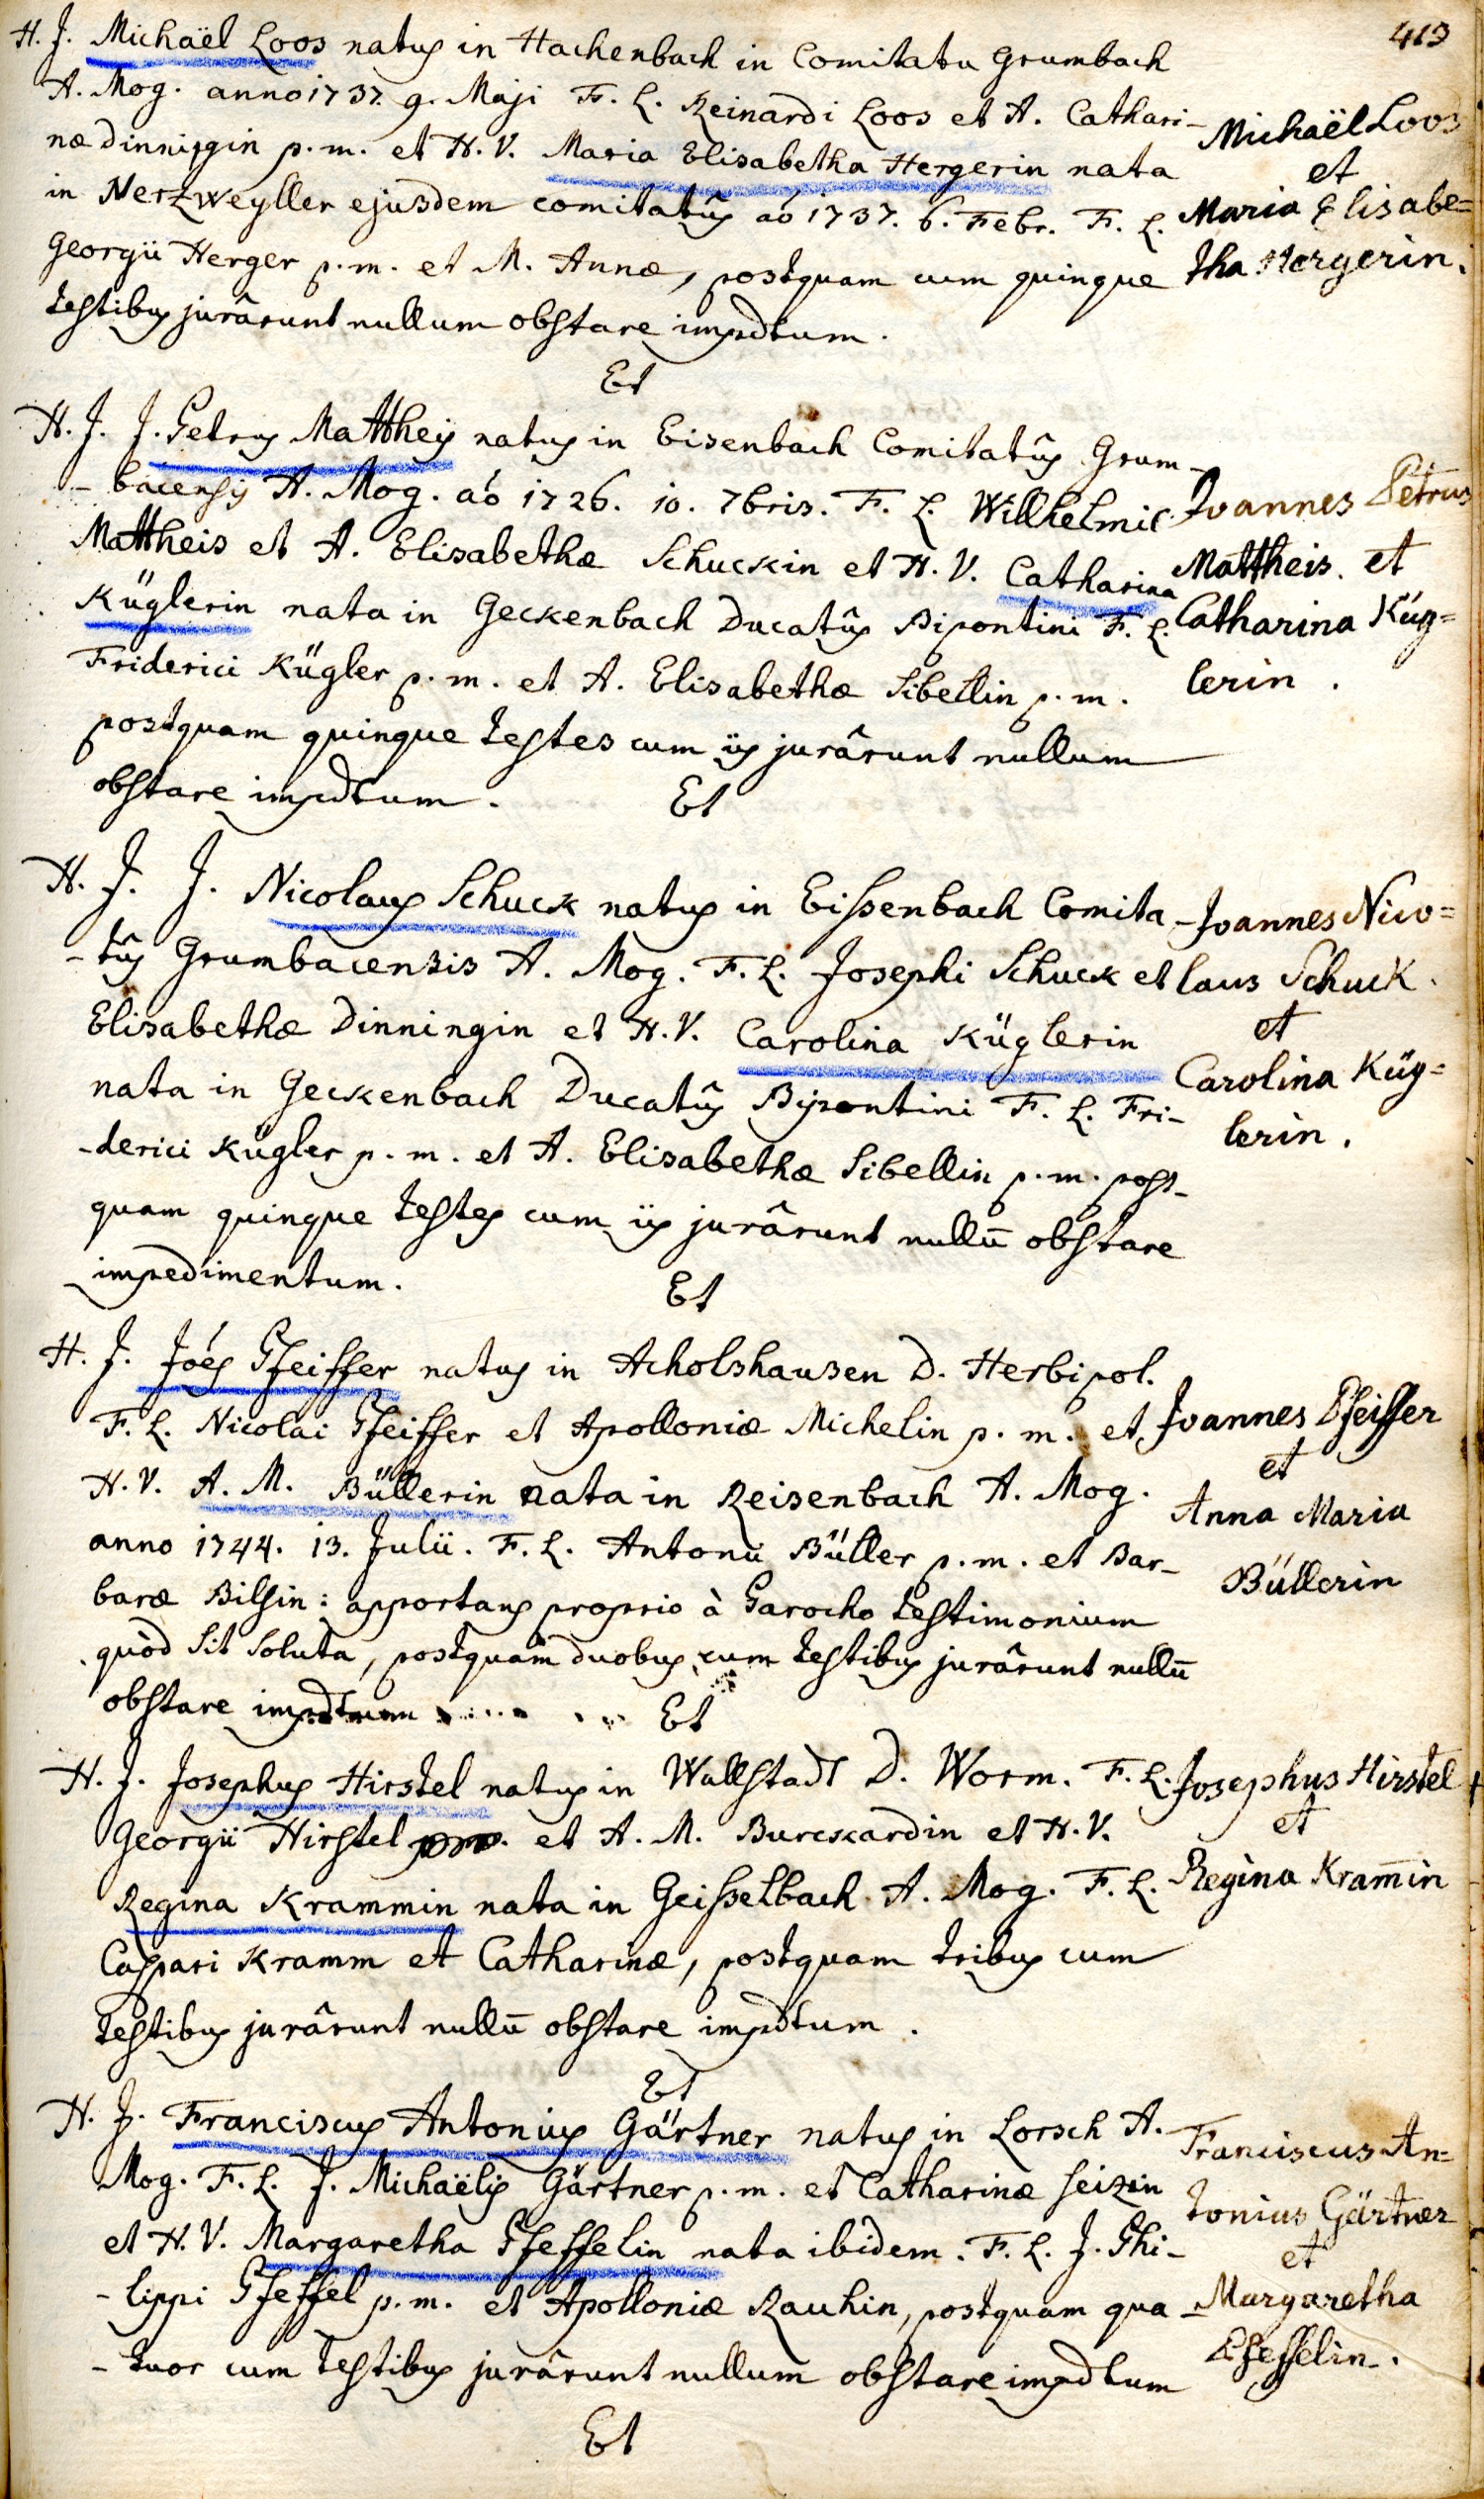 413
H. J. Michaël Loos natus in Hachenbach in Comitatu Grumbach
A. Mog. anno 1737. 9. Maji F. L. Reinardi Loos et A. Cathari-
næ dinningin p. m. et H. V. Maria Elisabetha Hergerin nata
in Nerzweyller ejusdem comitatûs aó 1737. 6. Febr. F. L.
Georgii Herger p. m. et M. Annæ, postquam cum quinque
testibus jurârunt nullum obstare impdtum.
Michaël Loos
et
Maria Elisabe=
tha Hergerin.
Et
H. J. J. Petrus Mattheis natus in Eisenbach Comitatûs Grum-
-bacensis A. Mog. aó 1726. 10. 7bris. F. L. Wilhelmi
Mattheis et A. Elisabethæ Schuckin et H. V. Catharina
Küglerin nata in Geckenbach Ducatûs Bipontini F. L.
Friderici Kügler p. m. et A. Elisabethæ Sibellin p. m.
postquam quinque testes cum iis jurârunt nullum
obstare impdtum.
Joannes Petrus
Mattheis. et
Catharina Küg=
lerin.
Et
H. J. J. Nicolaus Schuck natus in Eissenbach Comita-
-tûs Grumbacensis A. Mog. F. L. Josephi Schuck et
Elisabethæ Dinningin et H. V. Carolina Küglerin
nata in Geckenbach Ducatûs Bipontini F. L. Fri-
-derici Kügler p. m. et A. Elisabethæ Sibellin p. m. post-
quam quinque testes cum iis jurârunt nullū obstare
impedimentum.
Joannes Nico=
laus Schuck.
et
Carolina Küg=
lerin.
Et
H. J. Joés Pfeiffer natus in Acholshausen D. Herbipol.
F. L. Nicolai Pfeiffer et Apolloniæ Michelin p. m. et
H. V. A. M. Büllerin nata in Reisenbach A. Mog.
anno 1744. 13. Julii. F. L. Antonii Büller p. m. et Bar-
baræ Bilsin: apportans proprio à Parocho testimonium
quòd sit soluta, postquam duobus cum testibus jurârunt nullū
obstare impdtum
Joannes Pfeiffer
et
Anna Maria
Büllerin
Et
H. J. Josephus Hirstel natus in Wallstadt D. Worm. F. L.
Georgii Hirstel et A. M. Burckardin et H. V.
Regina Krammin nata in Geisselbach A. Mog. F. L.
Caspari Kramm et Catharinæ, postquam tribus cum
testibus jurârunt nullū obstare impdtum.
Josephus Hirstel
et
Regina Kram̄in
Et
H. J. Franciscus Antonius Gärtner natus in Lorsch A.
Mog. F. L. J. Michaëlis Gärtner p. m. et Catharinæ Seizin
et H. V. Margaretha Pfeffelin nata ibidem. F. L. J. Phi-
-lippi Pfeffel p. m. et Apolloniæ Rauhin, postquam qua-
-tuor cum testibus jurârunt nullum obstare impdtum
Franciscus An=
tonius Gärtner
et
Margaretha
Pfeffelin.
Et